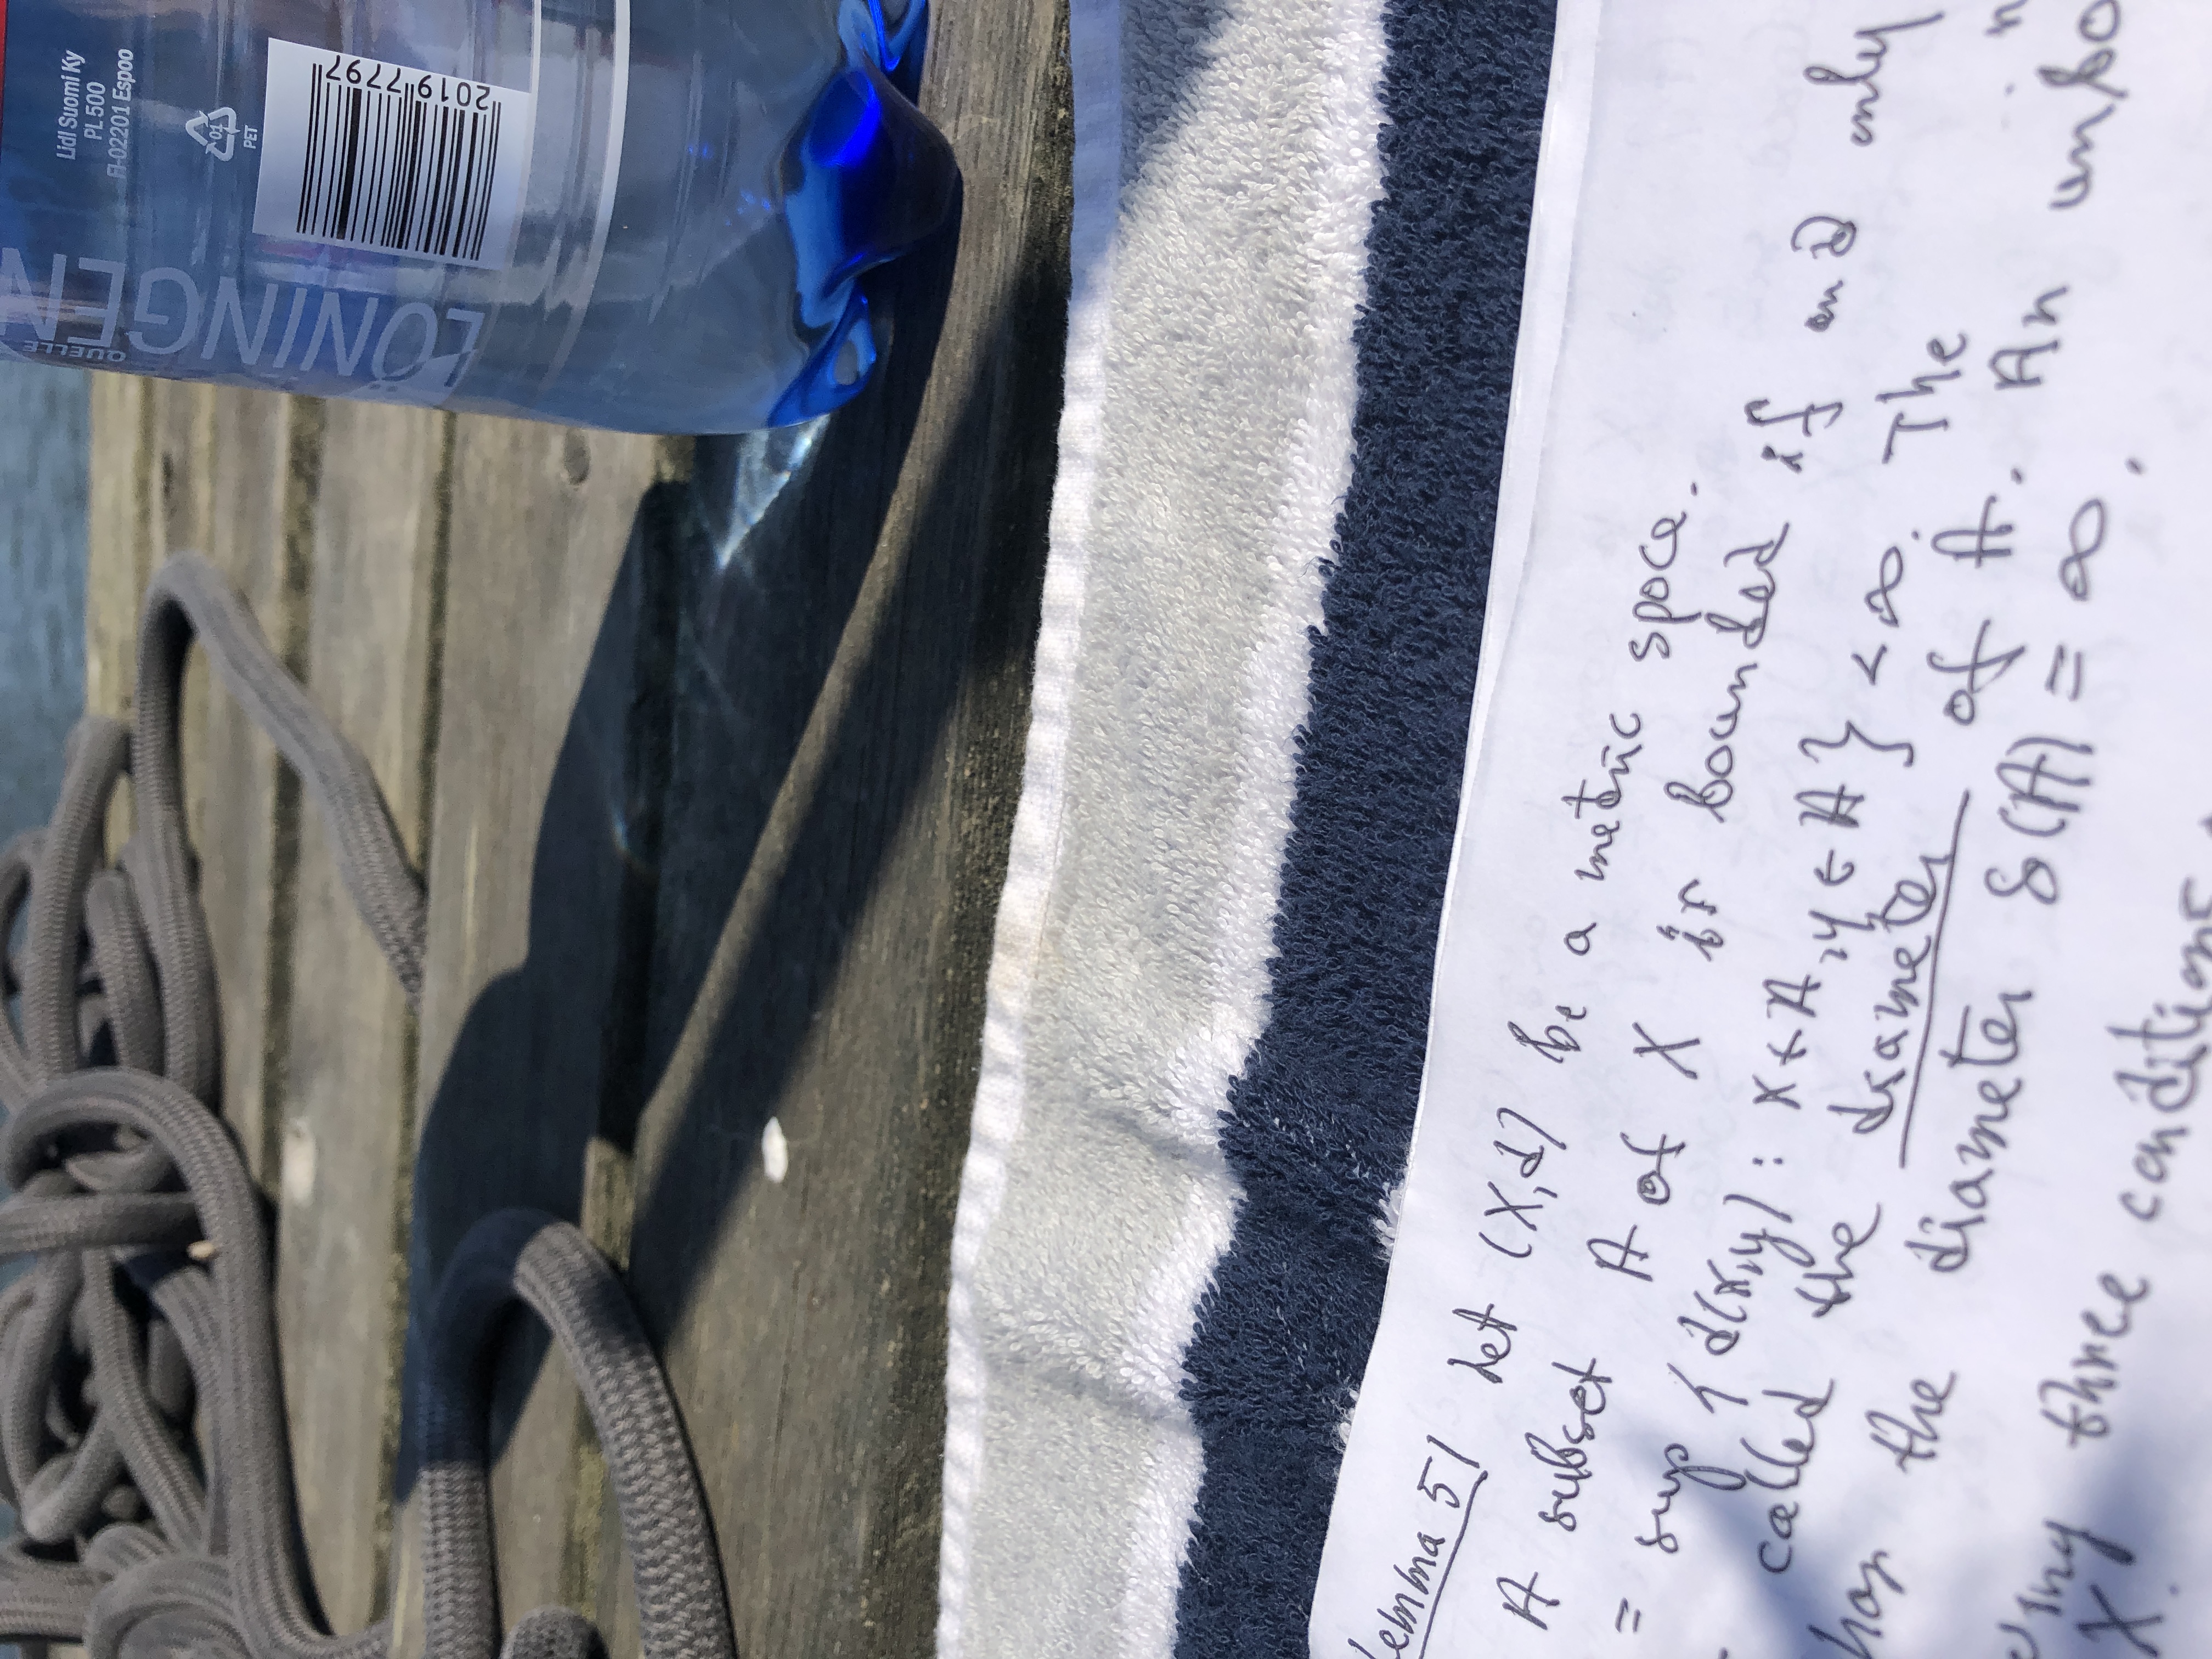 QUELLE
LÖNINGEN
Lidl Suomi Ky
PL 500
FI-02201 Espoo
01
PET
2019 7797
Lemma 5) Let (X,d) be a metric space.
A subset A of X is bounded if and only
= sup { d(x,y) : x ∈ A, y ∈ A } < ∞. The
called the diameter of A. An unbo
has the diameter δ(A) = ∞.
three conditions
X.